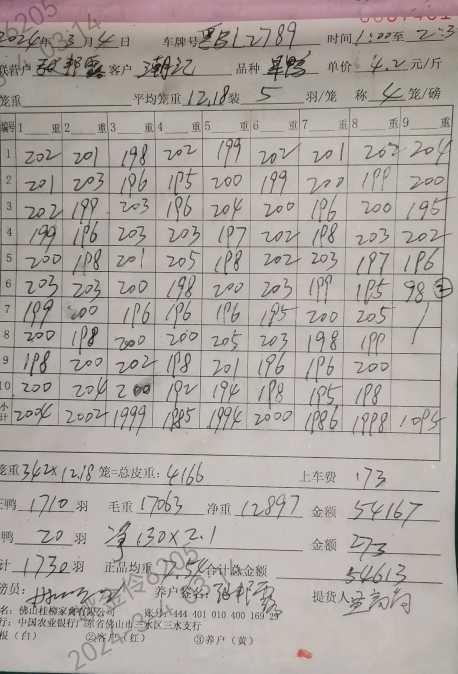 2024年 3月 4日 车牌号 12789 时间 1:00至 2:3
联营户 客户 品种 单价 4.2 元/斤
笼重 平均笼重 12.18 装 5 羽/笼 称 4 笼/磅
编号 1 重 2 重 3 重 4 重 5 重 6 重 7 重 8 重 9 重
1 202 201 198 202 199 202 201 202 204
2 201 203 196 195 200 199 200 199 200
3 202 199 203 196 204 200 196 200 195
4 199 196 203 203 197 202 198 203 202
5 200 198 201 205 198 202 203 197 196
6 203 203 200 198 200 203 199 195 98
7 199 200 196 196 196 195 200 205
8 200 198 200 200 205 203 198 199
9 198 200 202 198 201 196 196 200
10 200 204 200 192 194 198 195 198
小计 2004 2002 1999 1985 1994 2000 1986 1998 1095
笼重 342×12.18 笼=总皮重: 4166 上车费 173
鸭 1710 羽 毛重 17063 净重 12897 金额 54167
鸭 20 羽 净 130×2.1 金额 273
计 1730 羽 正品均重 7.54 合计总金额 54613
员: 养户签名: 提货人
名: 佛山桂柳家禽有限公司 账号: 444 401 010 400 169
行: 中国农业银行广东省佛山市三水区三水支行
板（白） ②客户（红） ③养户（黄）